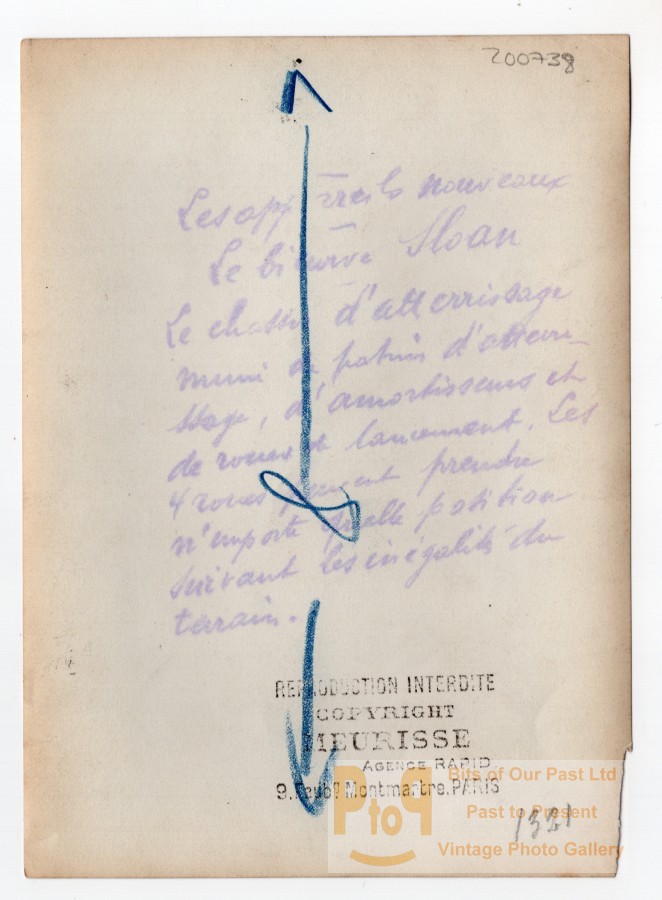 200738
Les appareils nouveaux
Le bicurve Sloan
Le chassis d'atterrissage
muni de patins d'atterri-
ssage, d'amortisseurs et
de roues de lancement. Les
4 roues peuvent prendre
n'importe quelle position
suivant les inégalités du
terrain.
8
REPRODUCTION INTERDITE
COPYRIGHT
MEURISSE
AGENCE RAPID
9, Faubg Montmartre. PARIS
1321
PtoP
Bits of Our Past Ltd
Past to Present
Vintage Photo Gallery